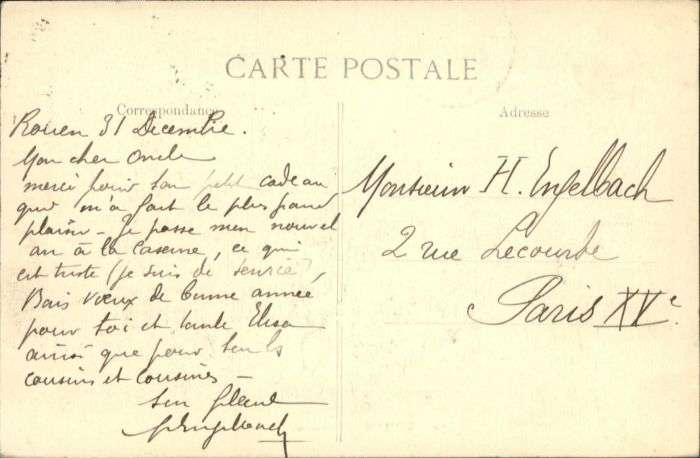 CARTE POSTALE
Correspondance
Adresse
Rouen 31 Decembre.
Mon cher Oncle
merci pour ton petit cadeau
qui m'a fait le plus grand
plaisir - Je passe mon nouvel
an à la caserne, ce qui
est triste (je suis de service),
Bons vœux de bonne année
pour toi et tante Elisa
ainsi que pour
cousins et cousines -
ton
Engelbach
Monsieur H. Engelbach
2 rue Lecourbe
Paris XVe.